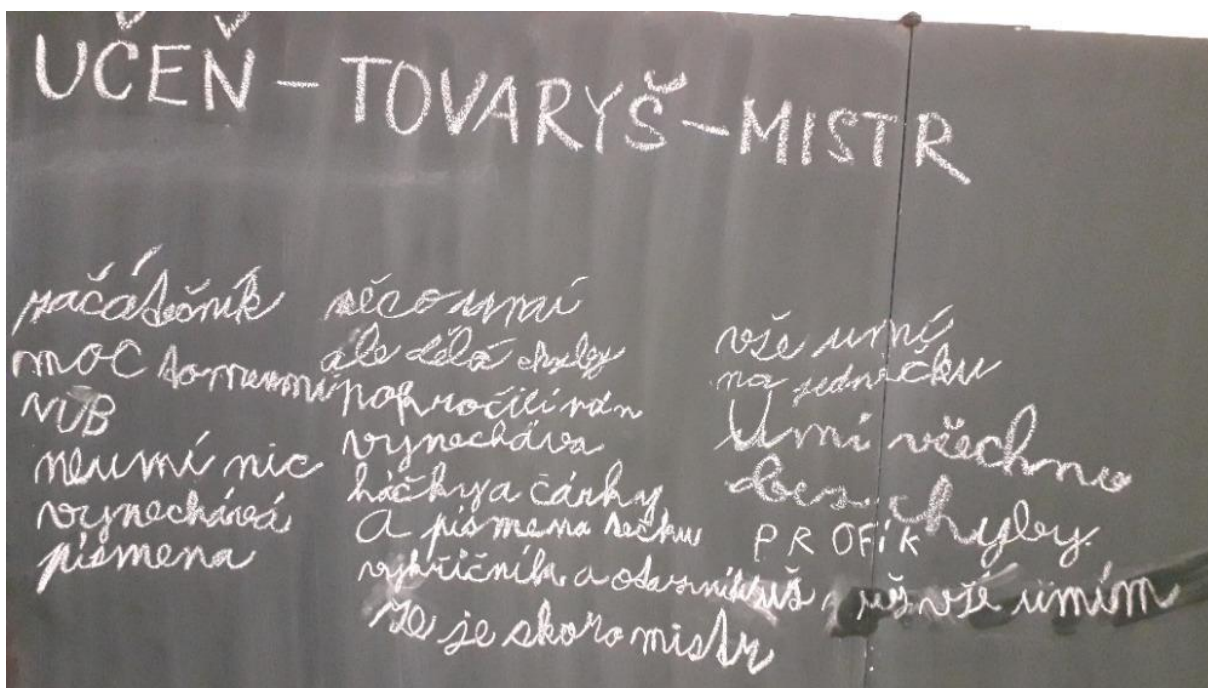 UČEŇ – TOVARYŠ – MISTR
začátečník
moc to neumí
NUB
neumí nic
vynechává
písmena
něco umí
ale dělá chyby
vynecháva
háčky a čárky
A písmena tečku
vykřičník a otazník
že je skoro mistr
vše umí
na jedničku
Umí všechno
bez chyby
PROFÍK
už vše umím